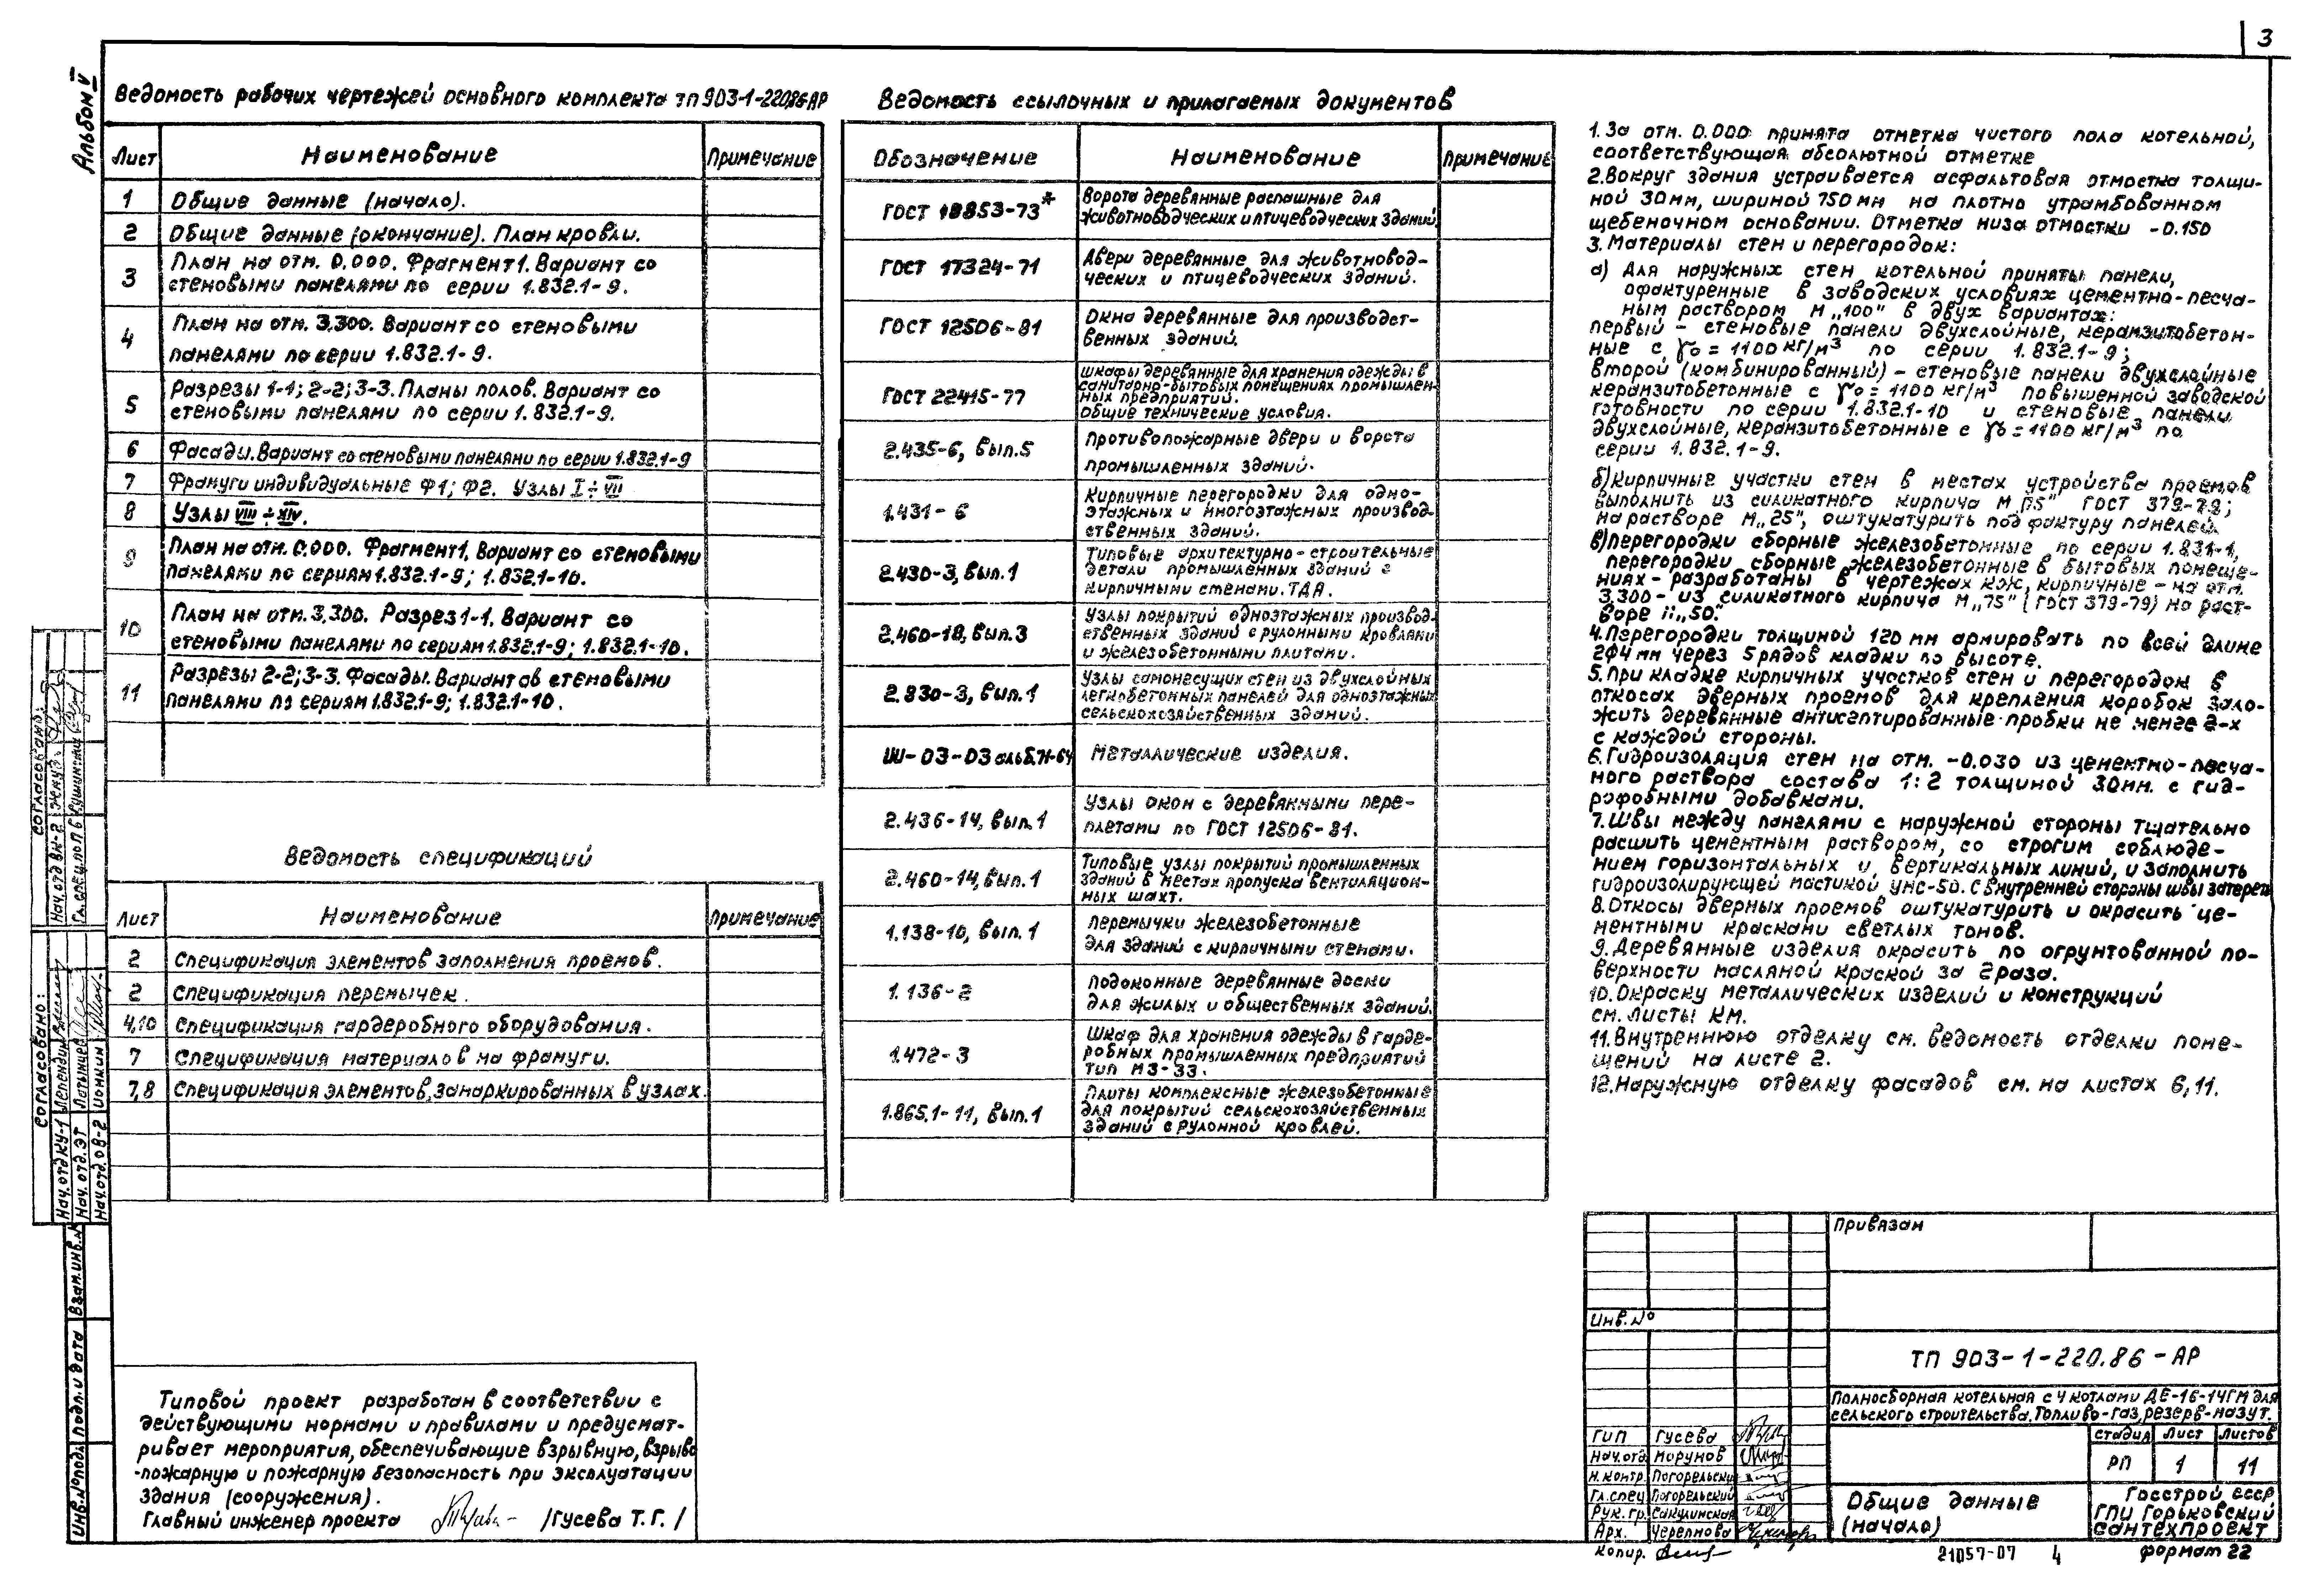 3
Альбом V
Ведомость рабочих чертежей основного комплекта ТП 903-1-220.86 АР
Лист Наименование Примечание
1 Общие данные (начало).
2 Общие данные (окончание). План кровли.
3 План на отм. 0.000. Фрагмент 1. Вариант со
стеновыми панелями по серии 1.832.1-9.
4 План на отм. 3.300. Вариант со стеновыми
панелями по серии 1.832.1-9.
5 Разрезы 1-1; 2-2; 3-3. Планы полов. Вариант со
стеновыми панелями по серии 1.832.1-9.
6 Фасады. Вариант со стеновыми панелями по серии 1.832.1-9
7 Фрамуги индивидуальные Ф1; Ф2. Узлы I÷VII
8 Узлы VIII÷XIV.
9 План на отм. 0.000. Фрагмент 1. Вариант со стеновыми
панелями по сериям 1.832.1-9; 1.832.1-10.
10 План на отм. 3.300. Разрез 1-1. Вариант со
стеновыми панелями по сериям 1.832.1-9; 1.832.1-10.
11 Разрезы 2-2; 3-3. Фасады. Вариантов стеновыми
панелями по сериям 1.832.1-9; 1.832.1-10.
Ведомость спецификаций
Лист Наименование Примечание
2 Спецификация элементов заполнения проемов.
2 Спецификация перемычек.
4,10 Спецификация гардеробного оборудования.
7 Спецификация материалов на фрамуги.
7,8 Спецификация элементов, замаркированных в узлах.
Типовой проект разработан в соответствии с
действующими нормами и правилами и предусмат-
ривает мероприятия, обеспечивающие взрывную, взрыво
-пожарную и пожарную безопасность при эксплуатации
здания (сооружения).
Главный инженер проекта /Гусева Т.Г./
Ведомость ссылочных и прилагаемых документов
Обозначение Наименование Примечание
ГОСТ 18853-73* Ворота деревянные распашные для
животноводческих и птицеводческих зданий.
ГОСТ 17324-71 Двери деревянные для животновод-
ческих и птицеводческих зданий.
ГОСТ 12506-81 Окна деревянные для производст-
венных зданий.
ГОСТ 22415-77 Шкафы деревянные для хранения одежды в
санитарно-бытовых помещениях промышлен-
ных предприятий.
Общие технические условия.
2.435-6, вып.5 Противопожарные двери и ворота
промышленных зданий.
1.431-6 Кирпичные перегородки для одно-
этажных и многоэтажных производ-
ственных зданий.
2.430-3, вып.1 Типовые архитектурно-строительные
детали промышленных зданий с
кирпичными стенами. ТДА.
2.460-18, вып.3 Узлы покрытий одноэтажных производ-
ственных зданий с рулонными кровлями
и железобетонными плитами.
2.830-3, вып.1 Узлы самонесущих стен из двухслойных
легкобетонных панелей для одноэтажных
сельскохозяйственных зданий.
III-03-03 альб.Н-64 Металлические изделия.
2.436-14, вып.1 Узлы окон с деревянными пере-
плетами по ГОСТ 12506-81.
2.460-14, вып.1 Типовые узлы покрытий промышленных
зданий в местах пропуска вентиляцион-
ных шахт.
1.138-10, вып.1 Перемычки железобетонные
для зданий с кирпичными стенами.
1.136-2 Подоконные деревянные доски
для жилых и общественных зданий.
1.472-3 Шкаф для хранения одежды в гарде-
робных промышленных предприятий
тип МЗ-33.
1.865.1-11, вып.1 Плиты комплексные железобетонные
для покрытий сельскохозяйственных
зданий с рулонной кровлей.
1. За отм. 0.000 принята отметка чистого пола котельной,
соответствующая абсолютной отметке
2. Вокруг здания устраивается асфальтовая отмостка толщи-
ной 30мм, шириной 750мм на плотно утрамбованном
щебеночном основании. Отметка низа отмостки -0.150
3. Материалы стен и перегородок:
а) Для наружных стен котельной приняты панели,
офактуренные в заводских условиях цементно-песча-
ным раствором М„100" в двух вариантах:
первый - стеновые панели двухслойные, керамзитобетон-
ные с γо=1100кг/м³ по серии 1.832.1-9;
второй (комбинированный) - стеновые панели двухслойные
керамзитобетонные с γо=1100кг/м³ повышенной заводской
готовности по серии 1.832.1-10 и стеновые панели
двухслойные, керамзитобетонные с γо=1100кг/м³ по
серии 1.832.1-9.
б) Кирпичные участки стен в местах устройства проемов
выполнить из силикатного кирпича М„75" ГОСТ 379-79;
на растворе М„25", оштукатурить под фактуру панелей.
в) Перегородки сборные железобетонные по серии 1.831-1,
перегородки сборные железобетонные в бытовых помеще-
ниях - разработаны в чертежах КЖ, кирпичные - на отм.
3.300 - из силикатного кирпича М„75" (ГОСТ 379-79) на раст-
воре М„50".
4. Перегородки толщиной 120мм армировать по всей длине
2ф4мм через 5 рядов кладки по высоте.
5. При кладке кирпичных участков стен и перегородок в
откосах дверных проемов для крепления коробок зало-
жить деревянные антисептированные пробки не менее 2-х
с каждой стороны.
6. Гидроизоляция стен на отм. -0.030 из цементно-песча-
ного раствора состава 1:2 толщиной 30мм. с гид-
рофобными добавками.
7. Швы между панелями с наружной стороны тщательно
расшить цементным раствором, со строгим соблюде-
нием горизонтальных и вертикальных линий, и заполнить
гидроизолирующей мастикой УМС-50. С внутренней стороны швы затереть
8. Откосы дверных проемов оштукатурить и окрасить це-
ментными красками светлых тонов.
9. Деревянные изделия окрасить по огрунтованной по-
верхности масляной краской за 2 раза.
10. Окраску металлических изделий и конструкций
см. листы КМ.
11. Внутреннюю отделку см. ведомость отделки поме-
щений на листе 2.
12. Наружную отделку фасадов см. на листах 6,11.
Привязан
Инв.№
ТП 903-1-220.86 -АР
Полносборная котельная с 4 котлами ДЕ-16-14ГМ для
сельского строительства. Топливо-газ, резерв-мазут.
ГИП Гусева
Нач.отд. Морунов
Н.контр. Погорельский
Гл.спец Погорельский
Рук.гр. Сакулинская
Арх. Черепнова
Стадия Лист Листов
РП 1 11
Общие данные
(начало)
Госстрой СССР
ГПИ Горьковский
Сантехпроект
Копир.
21057-07 4
Формат 22
Согласовано:
Нач.отд ВК-2
Гл.спец.по ПБ
Согласовано:
Нач.отд КУ-1 Лепендин
Нач.отд.ЭТ Латышев
Нач.отд.ОВ-2 Ионкин
Взам.инв.№
Подп. и дата
Инв.№ подл.